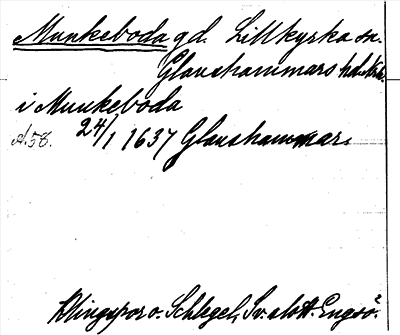 Munkeboda gd. Lillkyrka sn.
Glanshammars hd. Nke.
i Munkeboda
A. 58. 24/1 1637 Glanshammar.
Klingspor o. Schlegel, Sv. slott. Engsö.